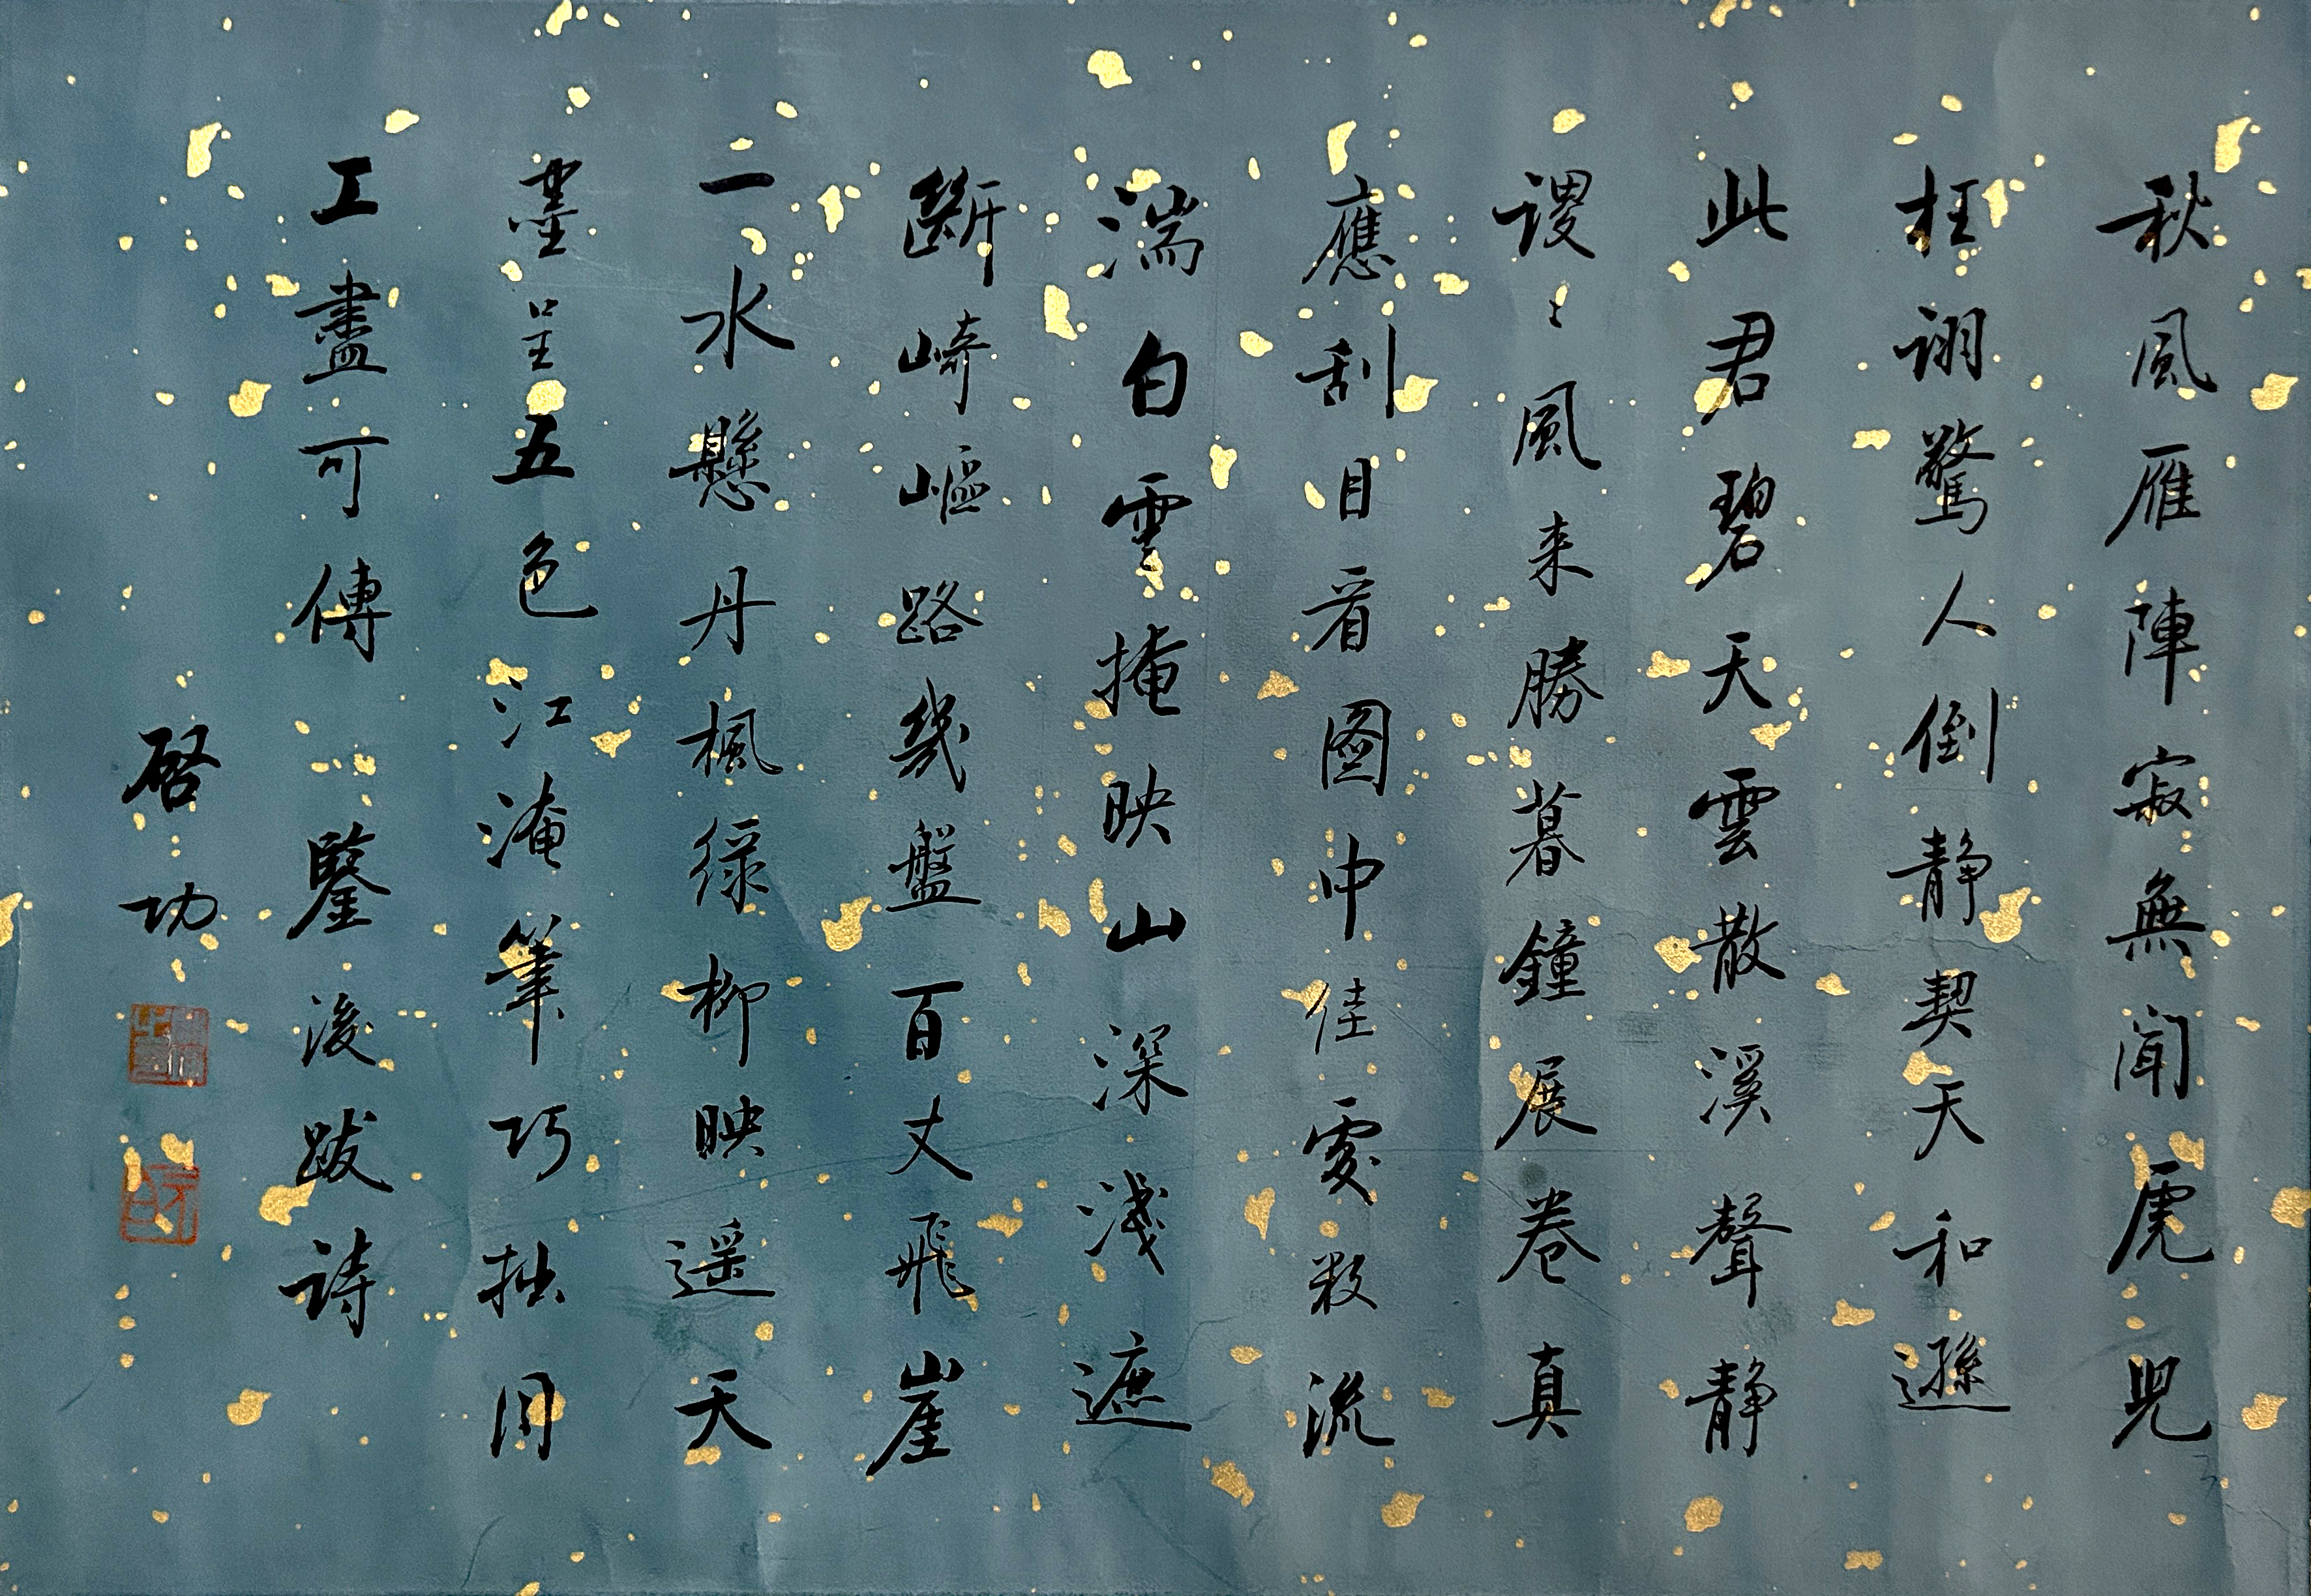 秋風雁陣寂無聞虎兕
枉詡驚人倒静契天和遜
此君碧天雲散溪聲静
謖〻風来勝暮鐘展卷真
應刮目看圖中佳處数流
湍白雲掩映山深淺遮
斷崎嶇路幾盤百丈飛崖
一水懸丹楓緑柳映遥天
墨呈五色江淹筆巧拙同
工盡可傳 鑒後跋詩
啓功